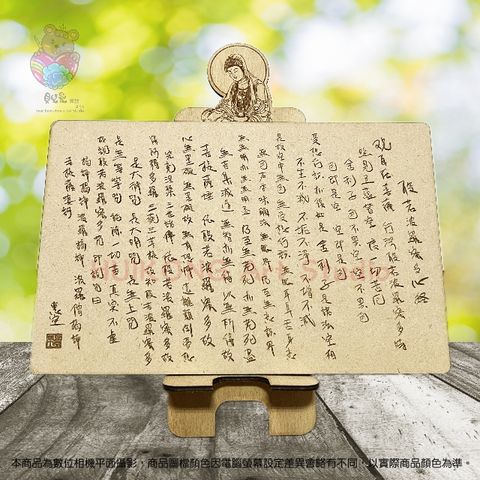 般若波羅蜜多心經
观自在菩薩 行深般若波羅蜜多時
照見五蘊皆空 度一切苦厄
舍利子 色不異空 空不異色
色即是空 空即是色
受想行識 亦復如是 舍利子 是諸法空相
不生不滅 不垢不淨 不增不減
是故空中無色 無受想行識 無眼耳鼻舌身意
無色聲香味觸法 無眼界 乃至無意識界
無無明 亦無無明盡 乃至無老死 亦無老死盡
無苦集滅道 無智亦無得 以無所得故
菩提薩埵 依般若波羅蜜多故
心無罣礙 無罣礙故 無有恐怖 遠離顛倒夢想
究竟涅槃 三世諸佛 依般若波羅蜜多故
得阿耨多羅三藐三菩提 故知般若波羅蜜多
是大神咒 是大明咒 是無上咒
是無等等咒 能除一切苦 真實不虛
故說般若波羅蜜多咒 即說咒曰
揭諦揭諦 波羅揭諦 波羅僧揭諦
菩提薩婆訶
HUIKONG Art Studio
本商品為數位相機平面攝影，商品圖檔顏色因電腦螢幕設定差異會略有不同，以實際商品顏色為準。